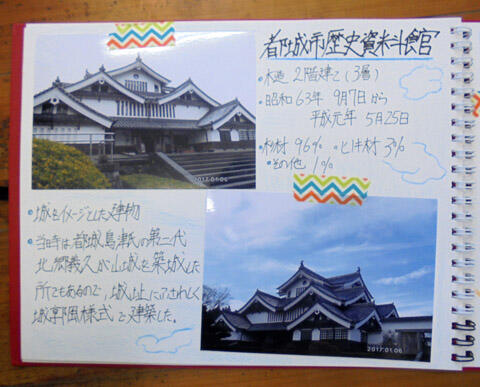 都城市歴史資料館
・木造 2階建て(3層)
・昭和63年 9月7日から
平成元年 5月25日
・杉材 96% ・ヒノキ材 3%
・その他 1%
2017.01.06
・城をイメージした建物
・当時は都城島津氏の第二代
北郷義久が山城を築城した
所でもあるので、城址にふさわしく
城郭風様式で建築した。
2017.01.06